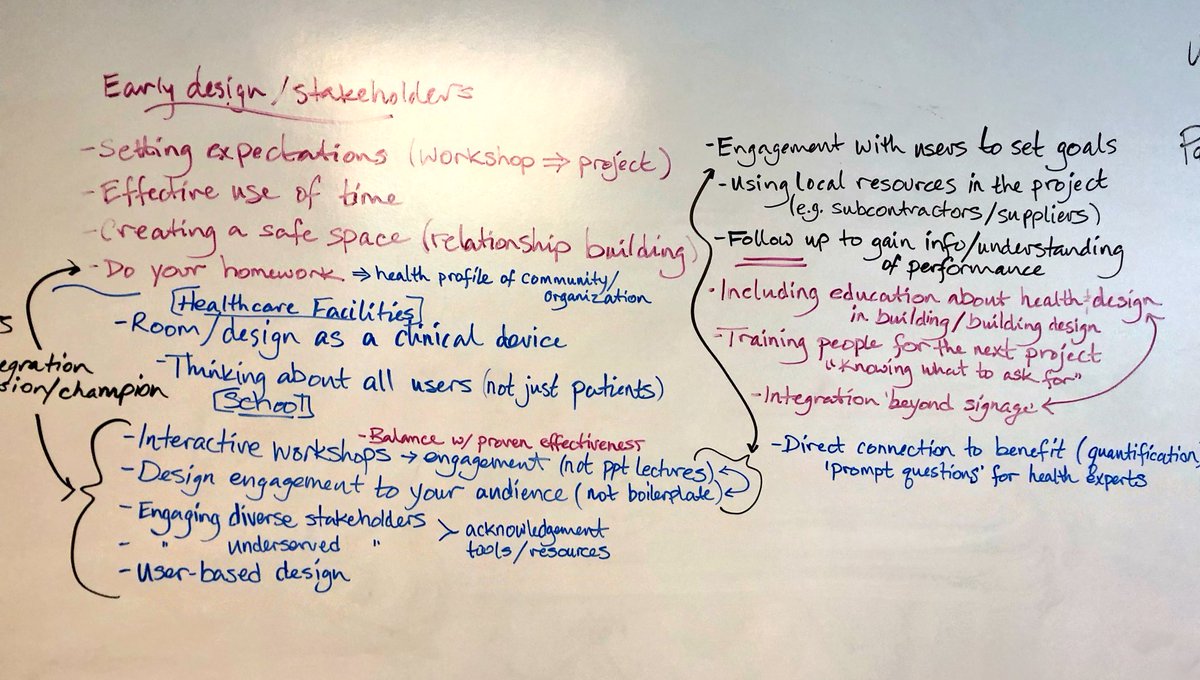 Early design/stakeholders
-Setting expectations (workshop ⇒ project)
-Effective use of time
-Creating a safe space (relationship building)
-Do your homework ⇒ health profile of community/
organization
[Healthcare Facilities]
-Room/design as a clinical device
-Thinking about all users (not just patients)
[School]
-Balance w/ proven effectiveness
-Interactive workshops → engagement (not ppt lectures)
-Design engagement to your audience (not boilerplate)
-Engaging diverse stakeholders > acknowledgement
- " underserved " tools/resources
-User-based design
/champion
-Engagement with users to set goals
-Using local resources in the project
(e.g. subcontractors/suppliers)
-Follow up to gain info/understanding
of performance
-Including education about health+design
in building/building design
-Training people for the next project
"Knowing what to ask for"
-Integration 'beyond signage'
-Direct connection to benefit (quantification,
'prompt questions' for health experts